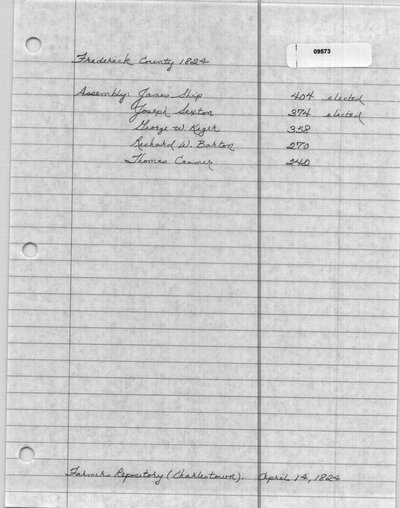 09573
Frederick County 1824
Assembly: James Ship 404 elected
Joseph Sexton 374 elected
George W. Kiger 358
Richard W. Barton 270
Thomas Cramer 240
Farmers Repository (Charlestown). April 14, 1824